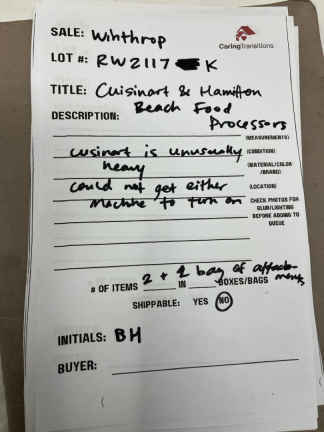 SALE: Winthrop
CaringTransitions
LOT #: RW2117 K
TITLE: Cuisinart & Hamilton
Beach Food
Processors
DESCRIPTION:
(MEASUREMENTS)
cusinart is unusually (CONDITION)
heavy (MATERIAL/COLOR
/BRAND)
could not get either (LOCATION)
machine to turn on CHECK PHOTOS FOR
BLUR/LIGHTING
BEFORE ADDING TO
QUEUE
# OF ITEMS 2 + 1 bag of attachments IN BOXES/BAGS
SHIPPABLE: YES NO
INITIALS: BH
BUYER: